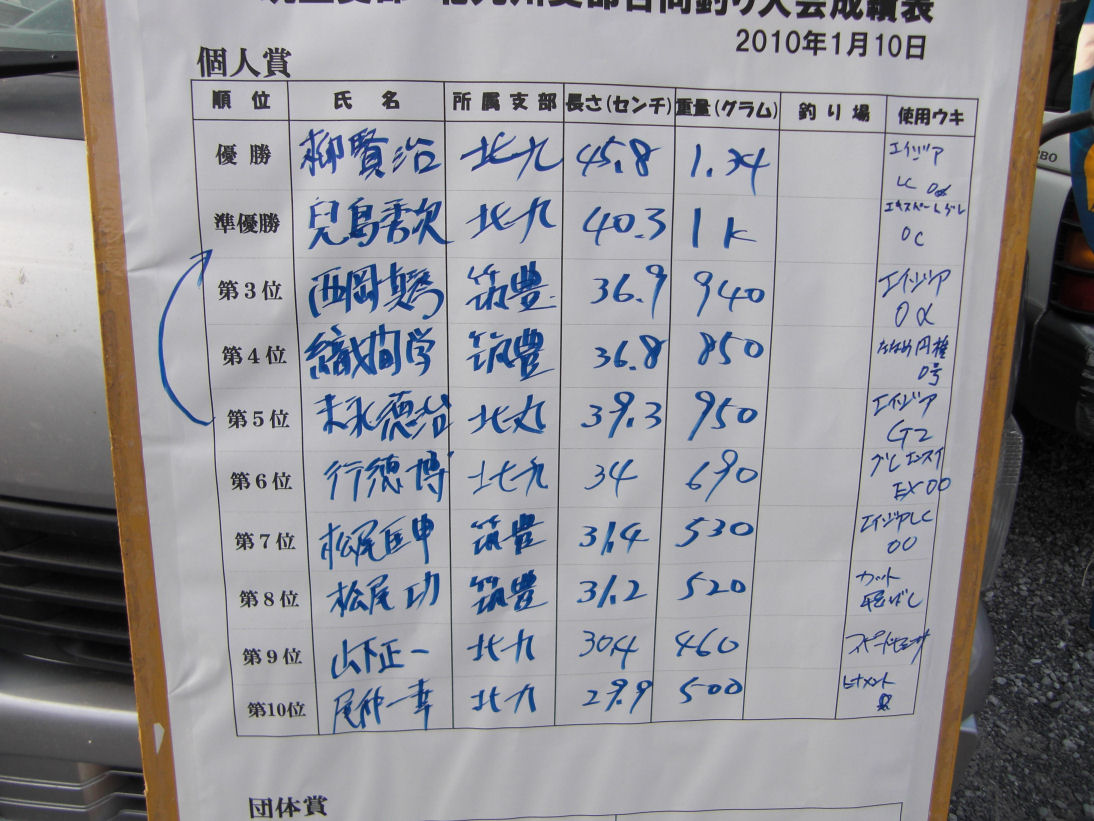 北九州支部合同釣り大会成績表
2010年1月10日
個人賞
順位 氏名 所属支部 長さ(センチ) 重量(グラム) 釣り場 使用ウキ
優勝 柳賢治 北九 45.8 1.34 エイジア LC 0α
準優勝 児島秀次 北九 40.3 1k 0C
第3位 西岡真 筑豊 36.9 940 エイジア 0α
第4位 織田学 筑豊 36.8 850 ななめ円椎 0号
第5位 末永德治 北九 39.3 950 エイジア G2
第6位 行徳博 北九 34 690 グレ EX00
第7位 松尾匡申 筑豊 31.4 530 エイジアLC 00
第8位 松尾功 筑豊 31.2 520 カット
第9位 山下正一 北九 30.4 460
第10位 尾仲一幸 北九 29.9 500
団体賞